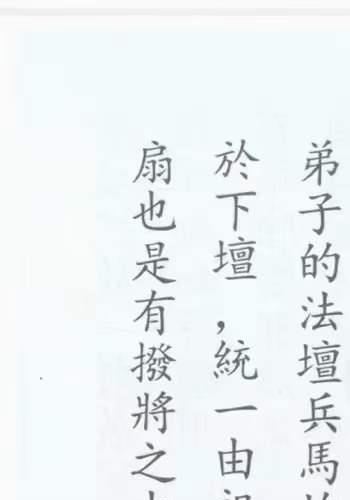 弟子的法壇兵馬
於下壇，統一由
扇也是有撥將之